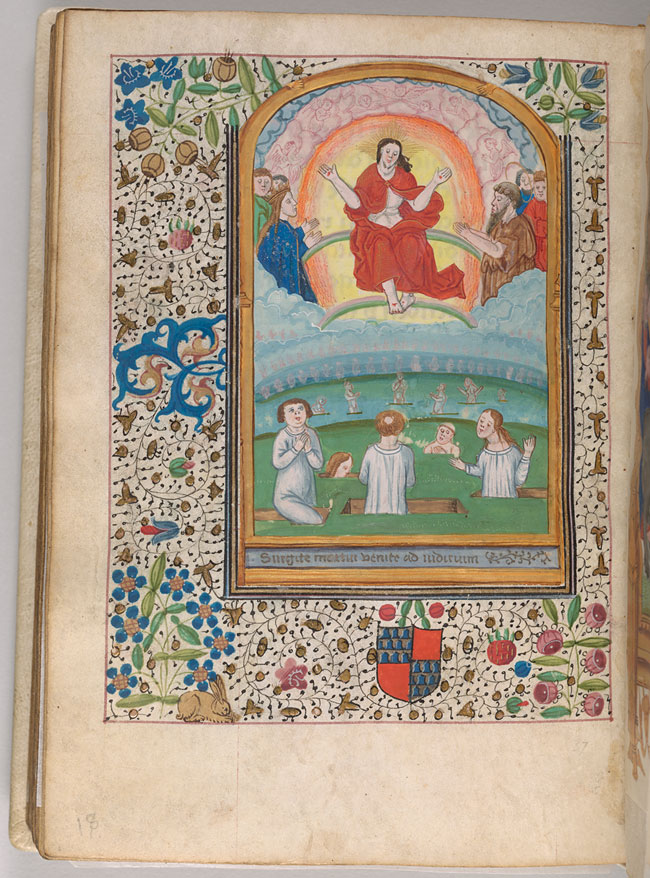 Surgite mortui venite ad iudicium
18